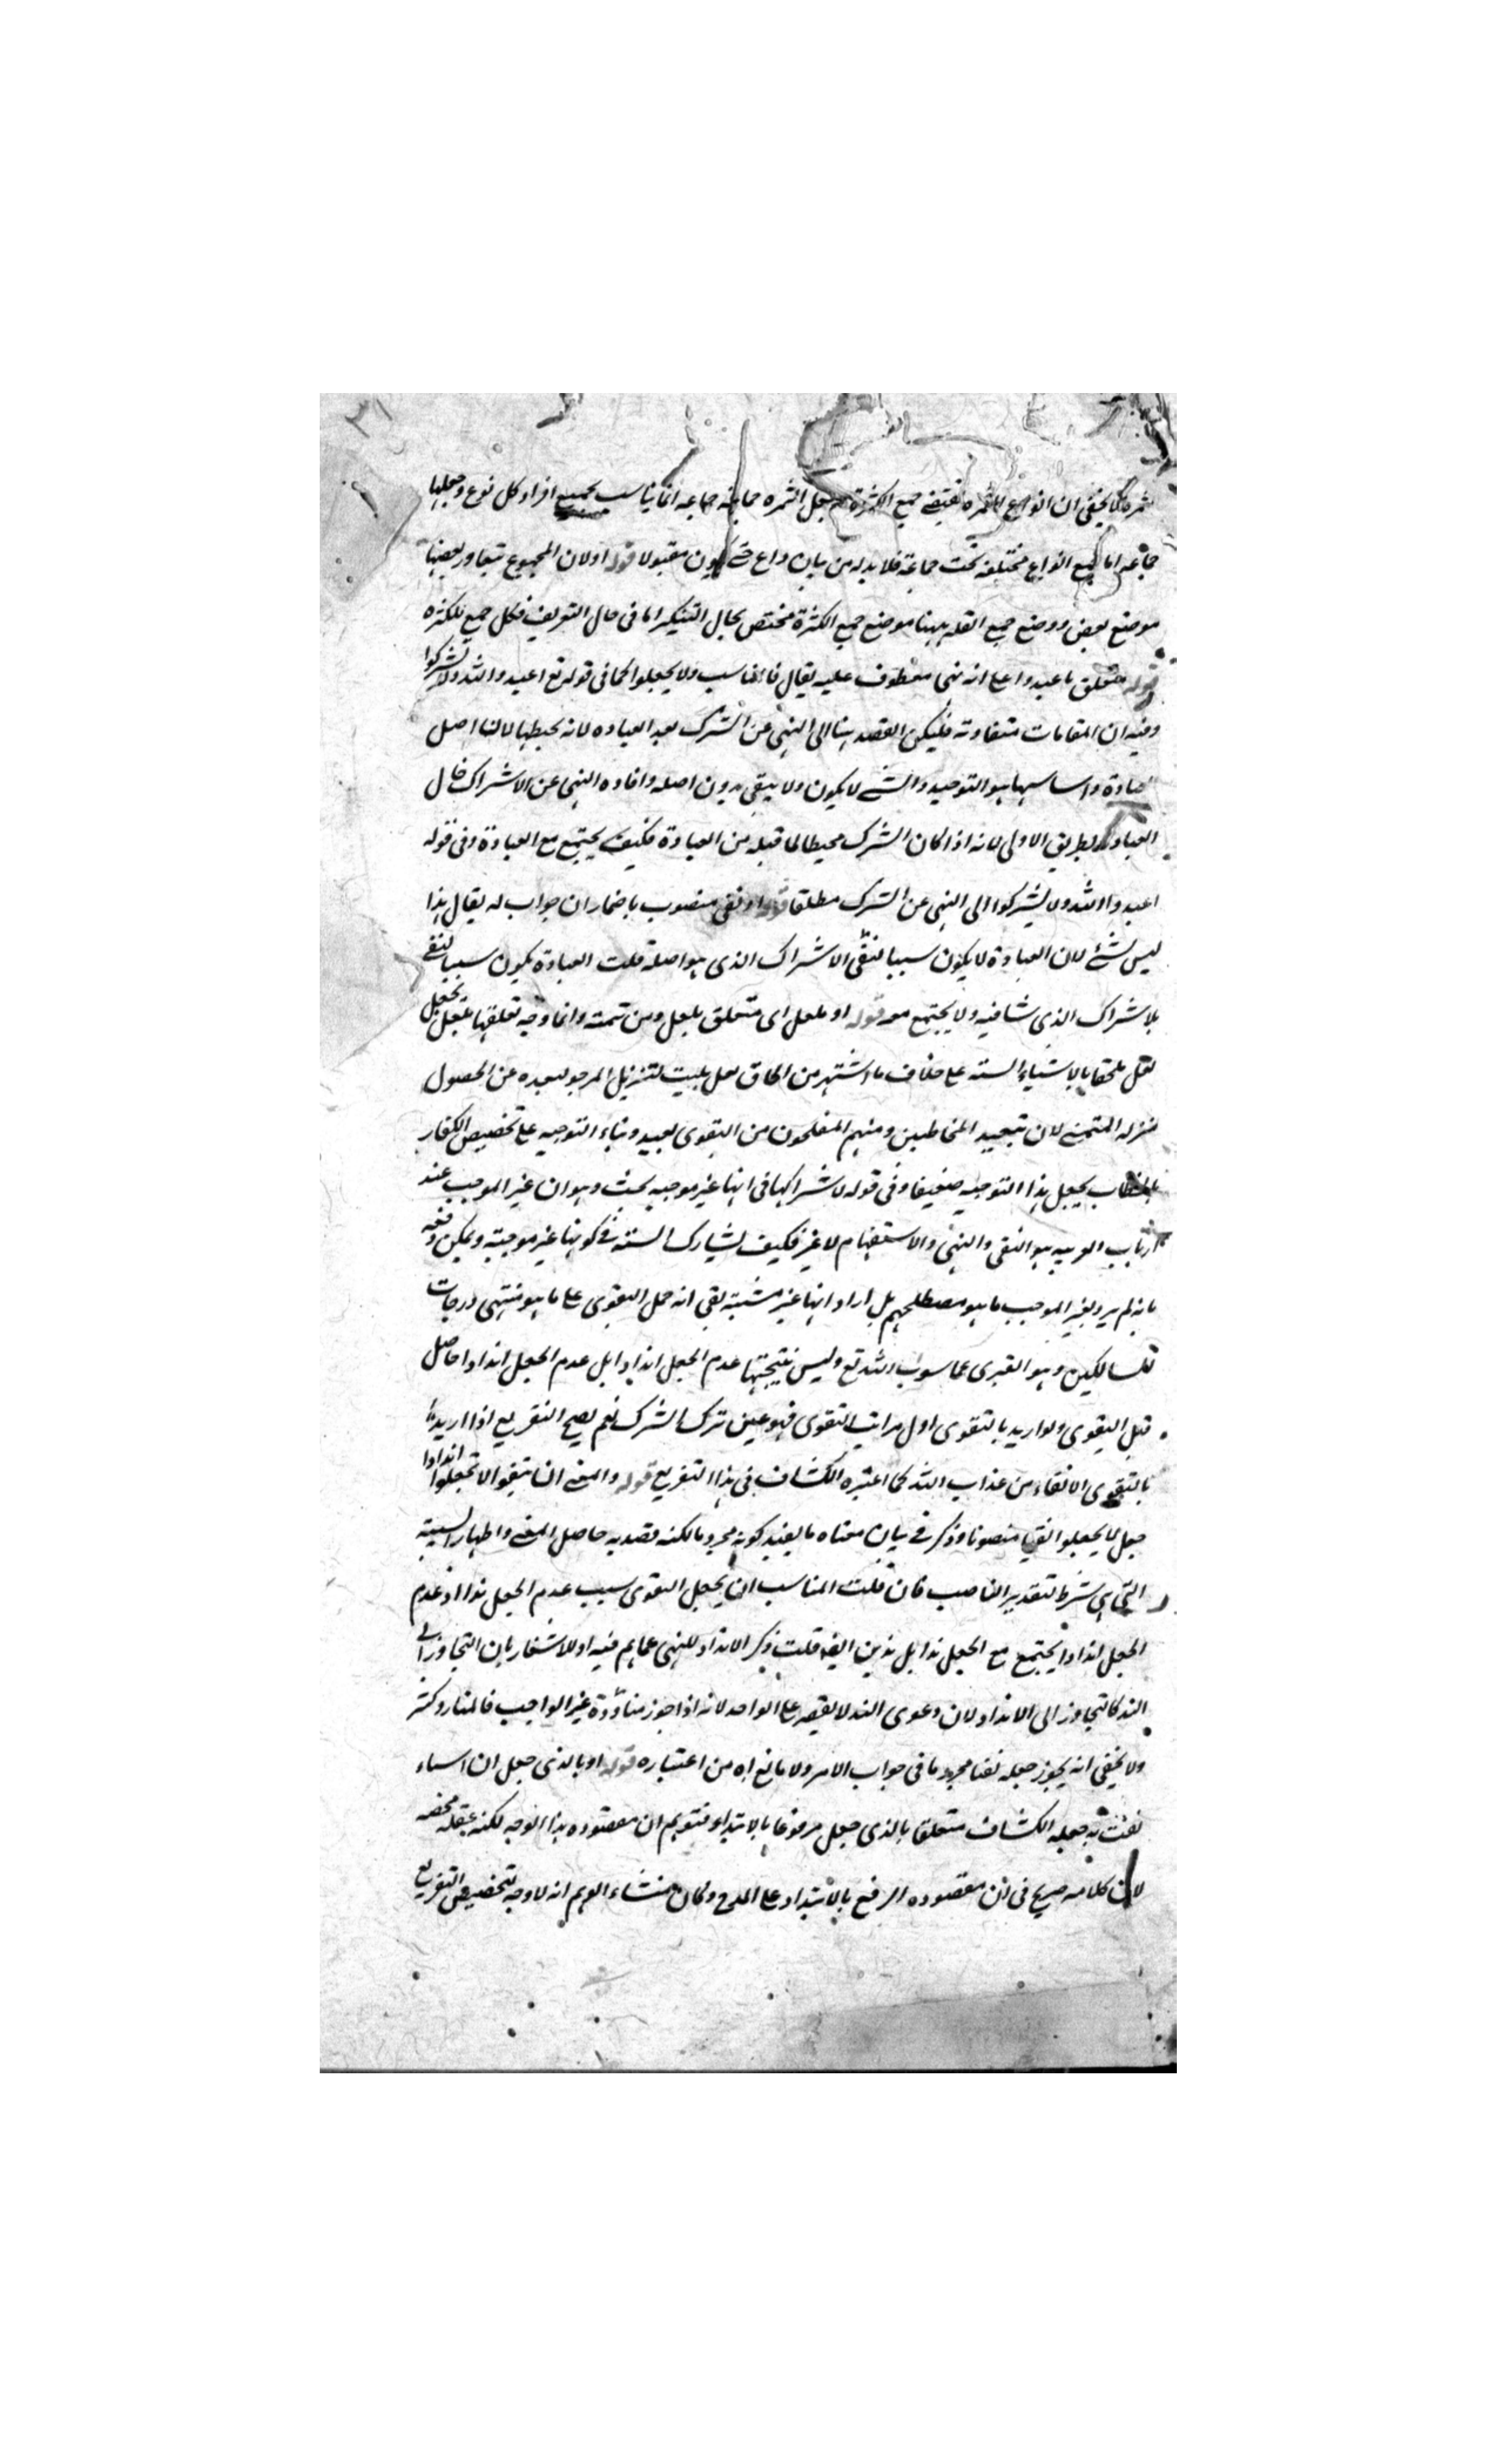 ٣١
ثمره لا يخفى ان انواع الثمره تقتضى جمع الكثرة جعل الثمره جماعه انما يناسب جميع افراد كل نوع وجعلها
جماعه اما جمع انواع مختلفه تحت جماعة فلا بد له من بيان داع حتى يكون مقبولا قوله او لان الجموع يتعاور بعضها
موضع بعض ووضع جمع القله ههنا موضع جمع الكثرة مختص بحال التنكير اما فى حال التعريف فكل جمع للكثره
قوله متعلق باعبدوا على انه نهى معطوف عليه يقال فالمناسب ولا يجعلوا كما فى قوله تع اعبدوا الله ولا تشركوا
وفيه ان المقامات متفاوته فليكن القصد هنا الى النهى عن الشرك بعد العباده لانه يحبطها لانها اصل
العبادة واساسها هو التوحيد والشئ لا يكون ولا يبقى بدون اصله وافاده النهى عن الاشراك حال
العبادة بطريق الاولى لانه اذا كان الشرك محبطا لما قبله من العبادة فكيف يجتمع مع العبادة وفى قوله
اعبدوا الله ولا تشركوا الى النهى عن الشرك مطلقا قوله او نفى منصوب باضمار ان جواب له يقال هذا
ليس بشئ لان العبادة لا يكون سببا لنفى الاشراك الذى هو اصله قلت العبادة يكون سببا لنفى
الاشراك الذى ينافيه ولا يجتمع معه قوله او بلعل اى متعلق بلعل ومن تتمته وانما وجه تعلقها بلعل بجعل
لعل ملحقا بالاشياء الستة على خلاف ما اشتهر من الحاق لعل بليت لتنزيل المرجو لبعده عن الحصول
منزله المتمنى لان تبعيد المخاطبين ومنهم المفلحون من التقوى بعيد وبناء التوجيه على تخصيص الكفار
بالخطاب يجعل هذا التوجيه ضعيفا وفى قوله لاشراكها فى انها غير موجبه بحث وهو ان غير الموجب عند
ارباب العربيه هو النفى والنهى والاستفهام لا غير فكيف يشارك الستة فى كونها غير موجبة ويمكن دفعه
بانه لم يرد بغير الموجب ما هو مصطلحهم بل اراد انها غير مثبته بقى انه حمل التقوى على ما هو منتهى درجات
السالكين وهو التبرى عما سوى الله تع وليس نتيجتها عدم الجعل اندادا بل عدم الجعل اندادا حاصل
قبل التقوى ولو اريد بالتقوى اول مراتب التقوى فهو عين ترك الشرك نعم يصح التفريع اذا اريد
بالتقوى الاتقاء من عذاب الله كما اعتبره الكشاف فى هذا التفريع قوله والمعنى ان تتقوا لا تجعلوا اندادا
جعل لا يجعلوا نفيا منصوبا وذكر فى بيان معناه ما يفيد كونه مجزوما لكنه قصد به حاصل المعنى واظهار السببية
التى هى شرط لتقدير الناصب فان قلت المناسب ان يجعل التقوى سبب عدم الجعل ندا اذ عدم
الجعل اندادا يجتمع مع الجعل ندا بل ندين ايضا قلت ذكر الانداد للنهى عما هم فيه او للاشعار بان التجاوز الى
الند كالتجاوز الى الانداد لان دعوى الند لا يقصر على الواحد لانه اذا جوز غير الواجب
ولا يخفى انه يجوز جعله نفيا مجزوما فى جواب الامر ولا مانع له من اعتباره قوله او بالذى جعل ان استاء
نفت به جعله الكشاف متعلقا بالذى جعل مرفوعا بالابتداء فتوهم ان مقصوده هذا الوجه لكنه
لان كلامه صريح فى ان مقصوده الرفع بالابتداء على المدح وكان منشاء الوهم انه لا وجه لتخصيص التفريع